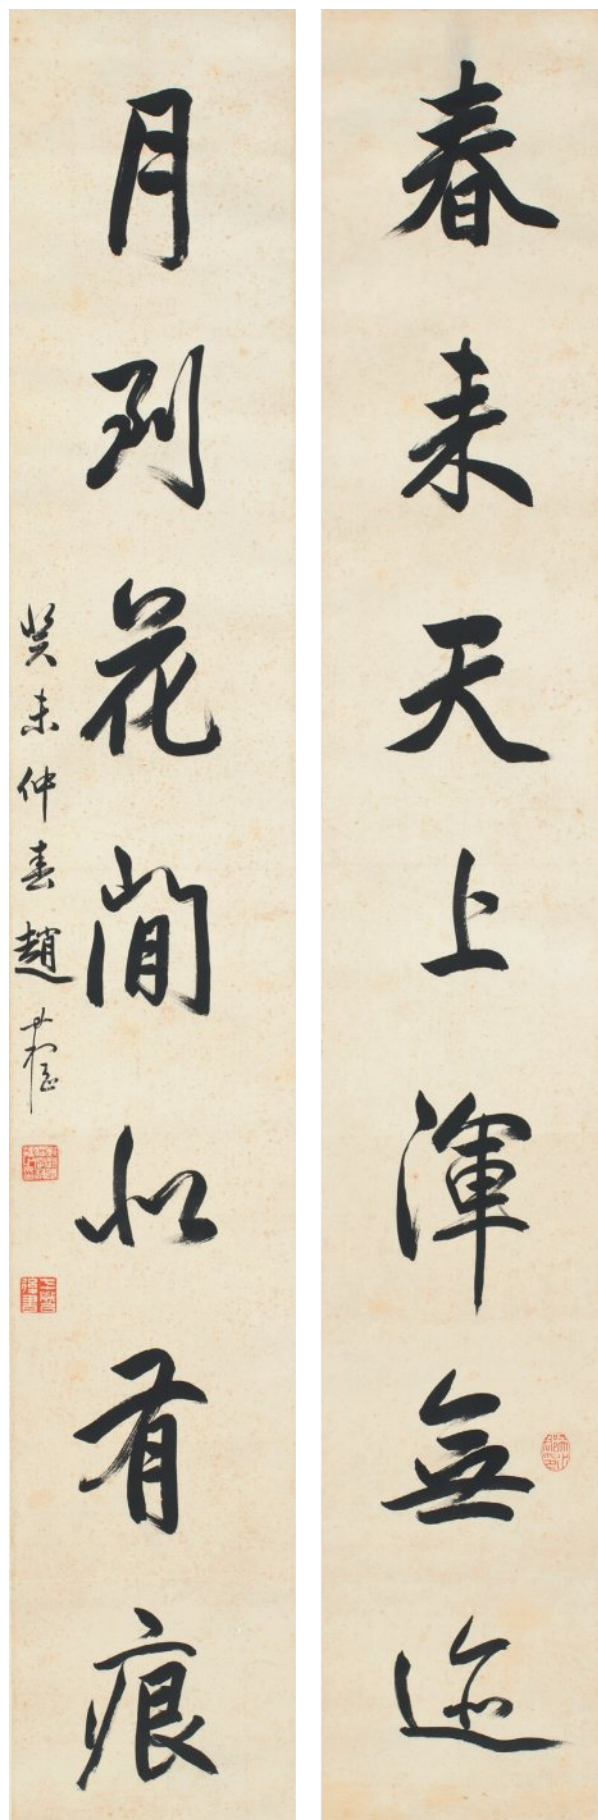 春来天上渾無迹
月到花間似有痕
癸未仲春趙世駿